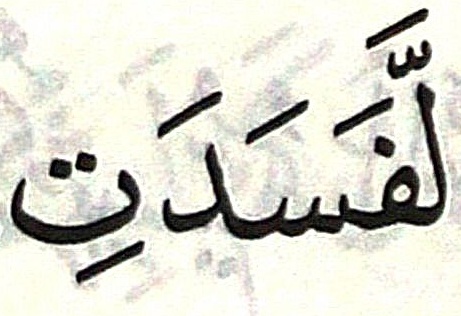 لَّفَسَدَتِ